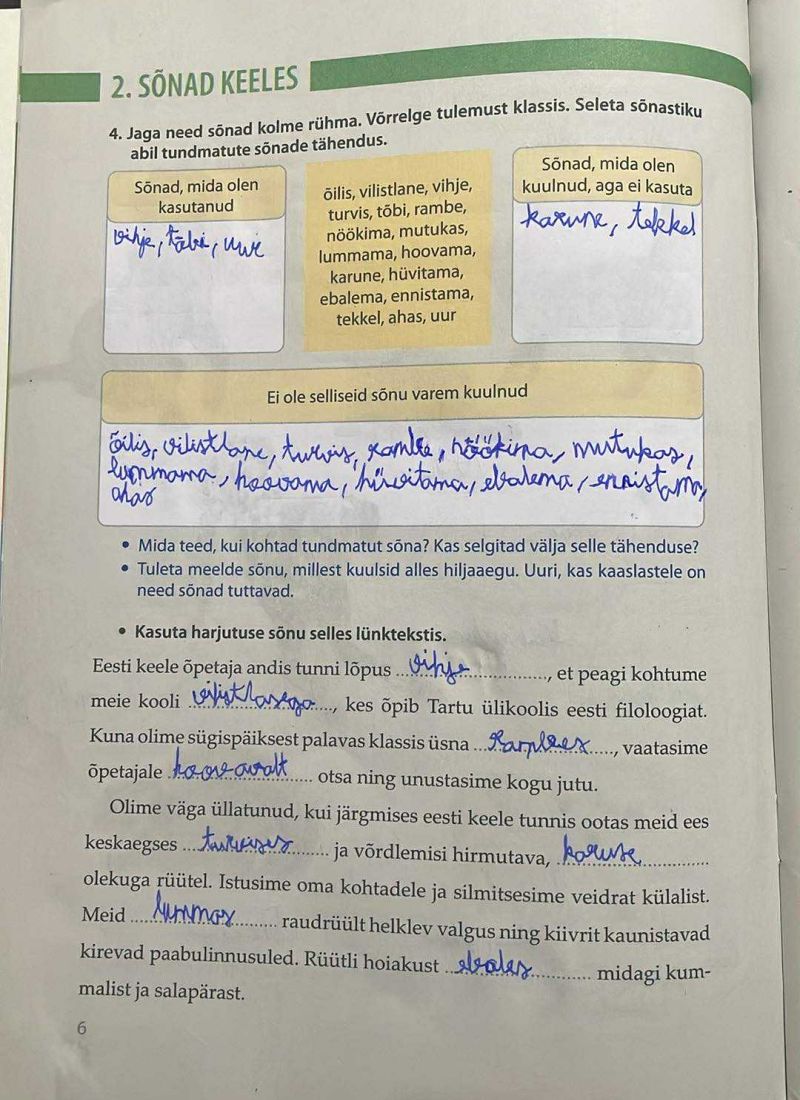 2. SÕNAD KEELES
4. Jaga need sõnad kolme rühma. Võrrelge tulemust klassis. Seleta sõnastiku
abil tundmatute sõnade tähendus.
Sõnad, mida olen
kasutanud
vihje, tõbi, uur
õilis, vilistlane, vihje,
turvis, tõbi, rambe,
nöökima, mutukas,
lummama, hoovama,
karune, hüvitama,
ebalema, ennistama,
tekkel, ahas, uur
Sõnad, mida olen
kuulnud, aga ei kasuta
karune, tekkel
Ei ole selliseid sõnu varem kuulnud
õilis, vilistlane, turvis, rambe, nöökima, mutukas,
lummama, hoovama, hüvitama, ebalema, ennistama,
ahas
• Mida teed, kui kohtad tundmatut sõna? Kas selgitad välja selle tähenduse?
• Tuleta meelde sõnu, millest kuulsid alles hiljaaegu. Uuri, kas kaaslastele on
need sõnad tuttavad.
• Kasuta harjutuse sõnu selles lünktekstis.
Eesti keele õpetaja andis tunni lõpus vihje, et peagi kohtume
meie kooli vilistlasega, kes õpib Tartu ülikoolis eesti filoloogiat.
Kuna olime sügispäiksest palavas klassis üsna, vaatasime
õpetajale hoovavalt otsa ning unustasime kogu jutu.
Olime väga üllatunud, kui järgmises eesti keele tunnis ootas meid ees
keskaegses turvises ja võrdlemisi hirmutava, karuse
olekuga rüütel. Istusime oma kohtadele ja silmitsesime veidrat külalist.
Meid lummas raudrüült helklev valgus ning kiivrit kaunistavad
kirevad paabulinnusuled. Rüütli hoiakust ebales midagi kum-
malist ja salapärast.
6